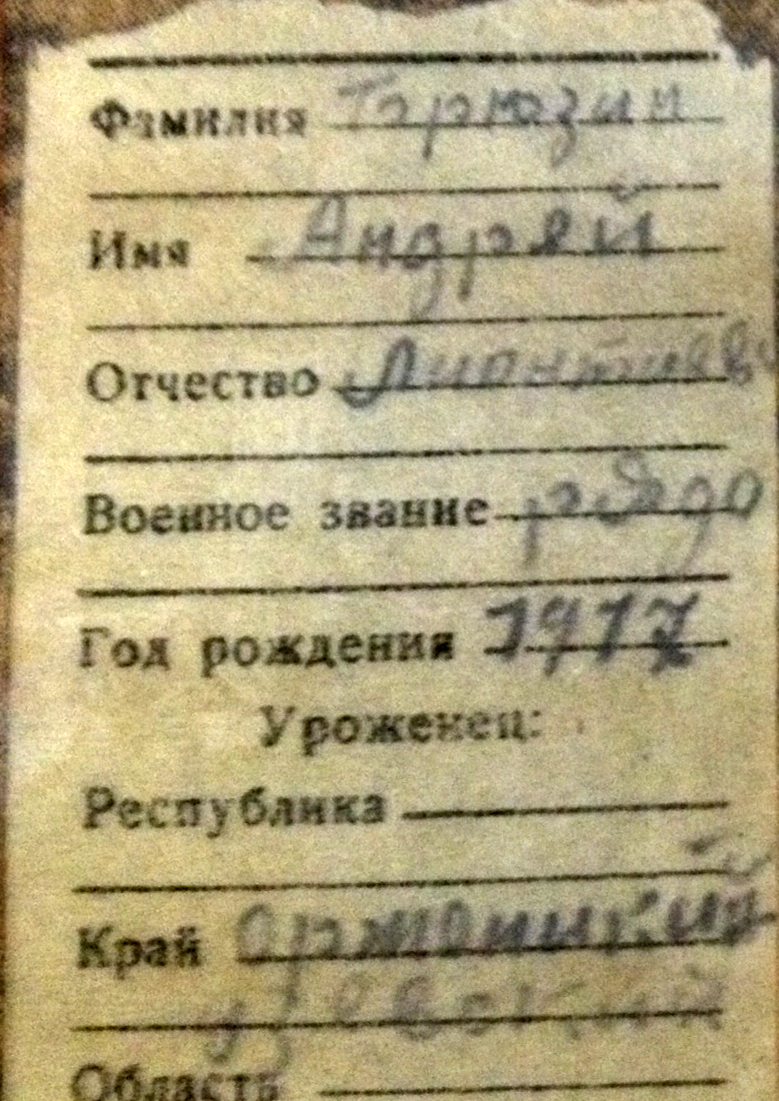 Фамилия Тарюзин
Имя Андрей
Отчество
Военное звание рядо
Год рождения 1917
Уроженец:
Республика
Край
Область